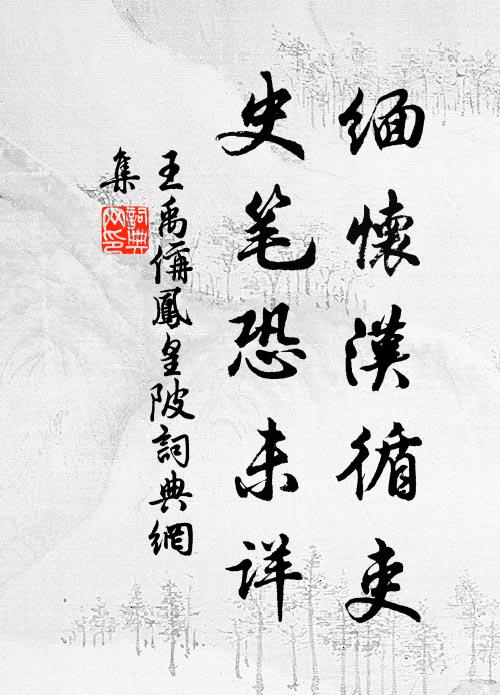 缅懷漢循吏
史笔恐未详
王禹偁鳳皇陂詞典網
集
詞典网印